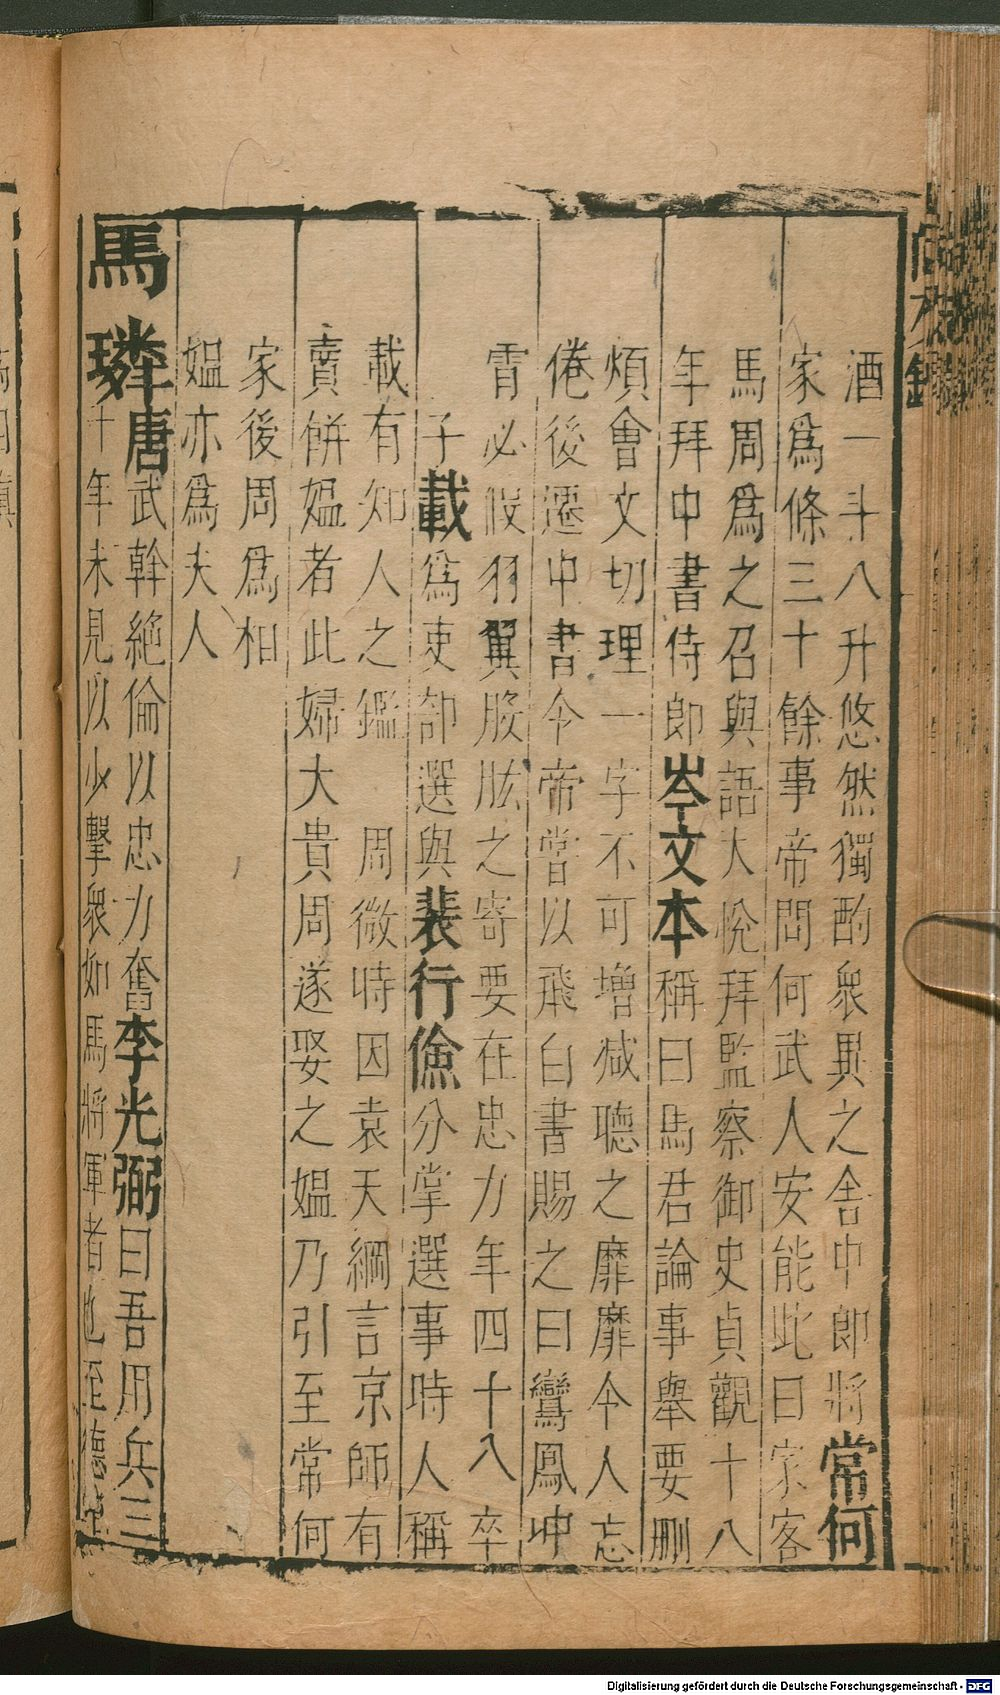 酒一斗八升悠然獨酌衆異之舍中郎將常何
家爲條三十餘事帝問何武人安能此曰家客
馬周爲之召與語大悅拜監察御史貞觀十八
年拜中書侍郎岑文本稱曰馬君論事舉要刪
煩會文切理一字不可增減聽之靡靡令人忘
倦後遷中書令帝嘗以飛白書賜之曰鸞鳳冲
霄必假羽翼股肱之寄要在忠力年四十八卒
子載爲吏部選與裴行儉分掌選事時人稱
載有知人之鑑 周微時因袁天綱言京師有
賣餅媼者此婦大貴周遂娶之媼乃引至常何
家後周爲相
媼亦爲夫人
馬璘唐武幹絶倫以忠力奮李光弼曰吾用兵三
十年未見以少擊衆如馬將軍者也至德
Digitalisierung gefördert durch die Deutsche Forschungsgemeinschaft - DFG